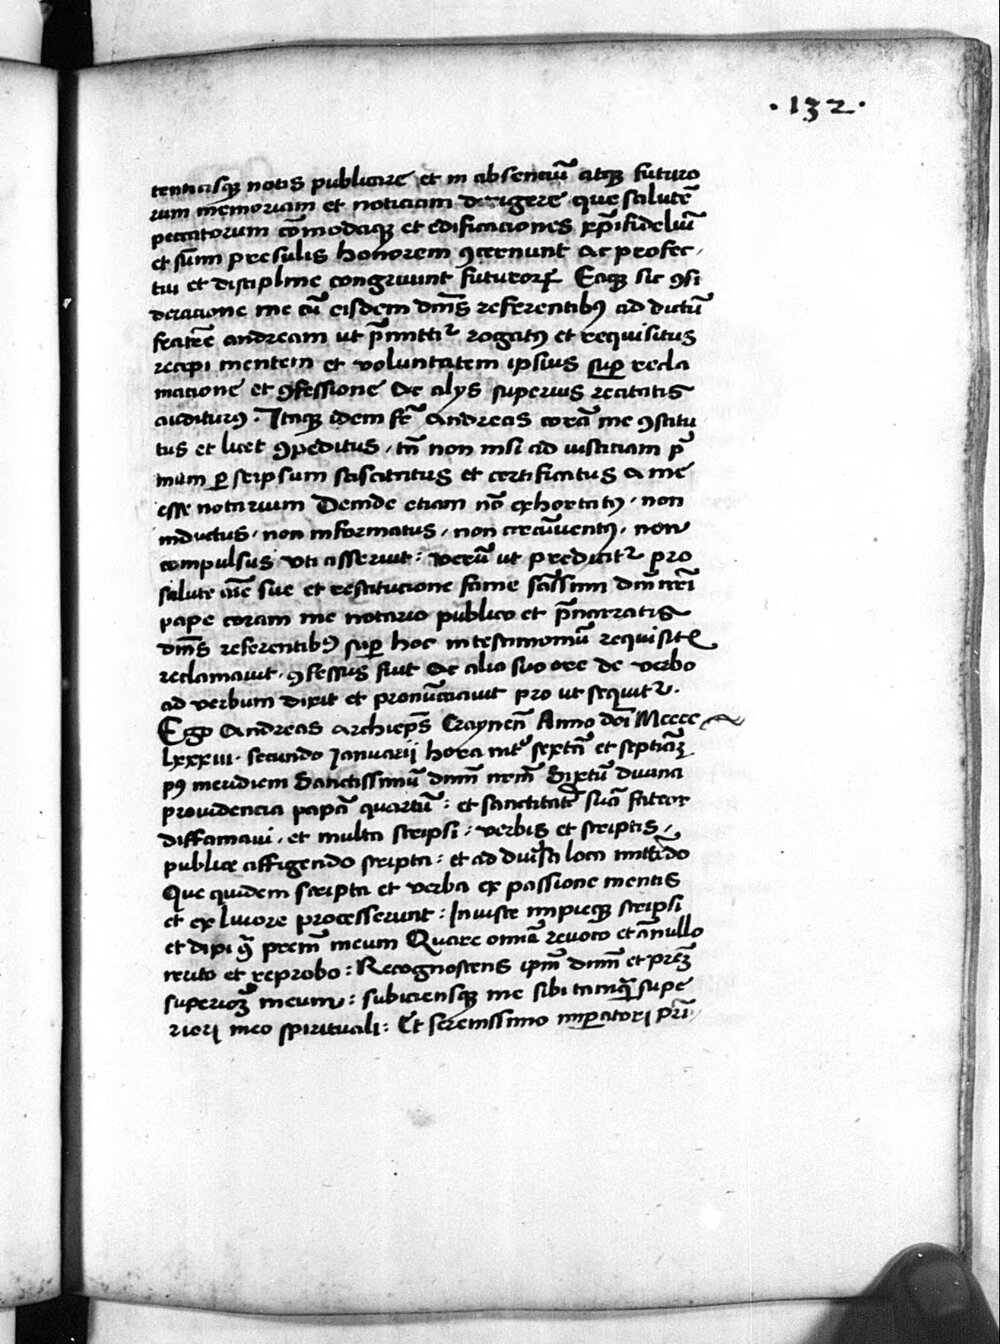 ·132·
tentiisq̃ notis publicare et in absenciũ atq̃ futuro
rum memoriam et noticiam dirigere que salutẽ
peccatorum cõmodaq̃ et edificaciones xp̃ifideliũ
et sum̃i presulis honorem ꝯcernunt ac profec,
tui et discipline congruunt futuroꝝ Eaq̃ sic ꝯsi
deracione me cũ eisdem dñis referentibꝰ ad dictũ
fratrẽ andream ut p̃mittit᷑ rogatꝰ et requisitus
recepi mentem et voluntatem ipsius sup̱ recla
macione et ꝯfessione ac alijs superius recitatis
auditurꝰ. Itaq̃ idem fr̃ Andreas corã me ꝯstitu
tus et licet ꝯpeditus, tñ non nisi ad iusticiam p̃
mum ꝑ seipsum sciscitatus et certificatus a me
esse notarium Deinde etiam nõ exhortatꝰ, non
inductus, non informatus, non circũuentꝰ, non
compulsus vti asseruit: verũ ut predicit᷑ pro
salute aĩe sue et restitucione fame sãctissimi dñi nr̃i
pape coram me notario publico et p̃narratis
dñis referentibꝰ sup̱ hoc in testimoniũ requisitis
reclamauit, ꝯfessus fuit ac alio suo ore de verbo
ad verbum dixit et pronũciauit pro ut sequit᷑.
Ego Andreas archiep̃s Craynen̄ Anno dñi Mcccc
lxxxiii. secundo Januarij hora int᷑ sextã et septiãꝫ
pꝰ meridiem Sanctissimũ dñm nr̃m Sixtũ diuina
prouidencia papã quartũ: et sanctitatẽ suã fateor
diffamaui, et multa scripsi: verbis et scriptis,
publice affigendo scripta: et ad diũsa loca mittẽdo
Que quidem scripta et verba ex passione mentis
et ex liuore processerunt: Iniuste impieq̃ scripsi
et dixi ꝯ̃ prem̃ meum Quare omnia reuoco et ãnullo
reuto et reprobo: Recognoscens ipm̃ dñm et prẽꝫ
superioꝫ meum: subiciensq̃ me sibi tamq̃ supe
riori meo spirituali: Et serenissimo imꝑatori prĩ,